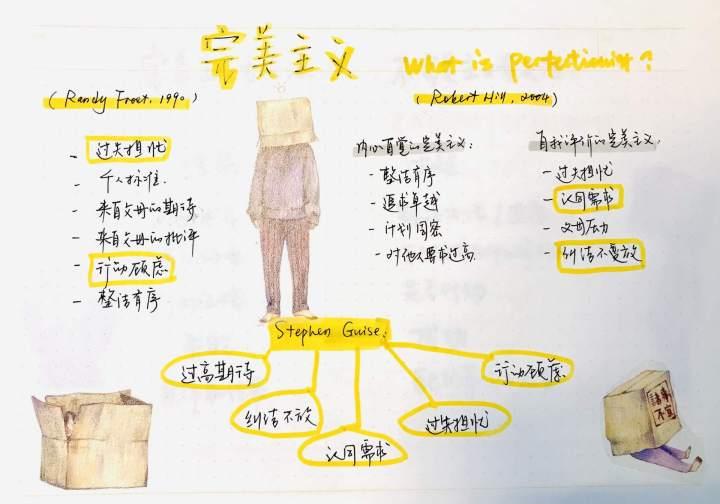 完美主义 What is perfectionist?
(Randy Frost, 1990)
- 过失担忧
- 个人标准
- 来自父母的期待
- 来自父母的批评
- 行动顾虑
- 整洁有序
(Robert Hill, 2004)
内心自觉的完美主义:
- 整洁有序
- 追求卓越
- 计划周密
- 对他人要求过高
自我评价的完美主义:
- 过失担忧
- 认同需求
- 父母压力
- 纠结不放
Stephen Guise:
过高期待
纠结不放
认同需求
过失担忧
行动顾虑
諸事
不宜